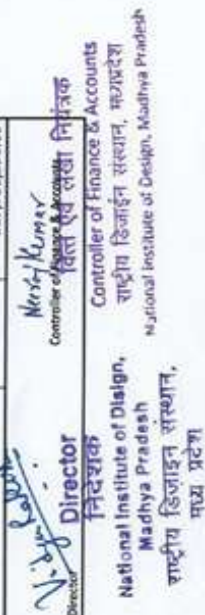 Director
Director
निदेशक
National Institute of Disign,
Madhya Pradesh
राष्ट्रीय डिज़ाईन संस्थान,
मध्य प्रदेश
Neeraj Kumar
Controller of Finance & Accounts
वित्त एवं लेखा नियंत्रक
Controller of Finance & Accounts
राष्ट्रीय डिजाईन संस्थान, मध्यप्रदेश
National Institute of Design, Madhya Pradesh